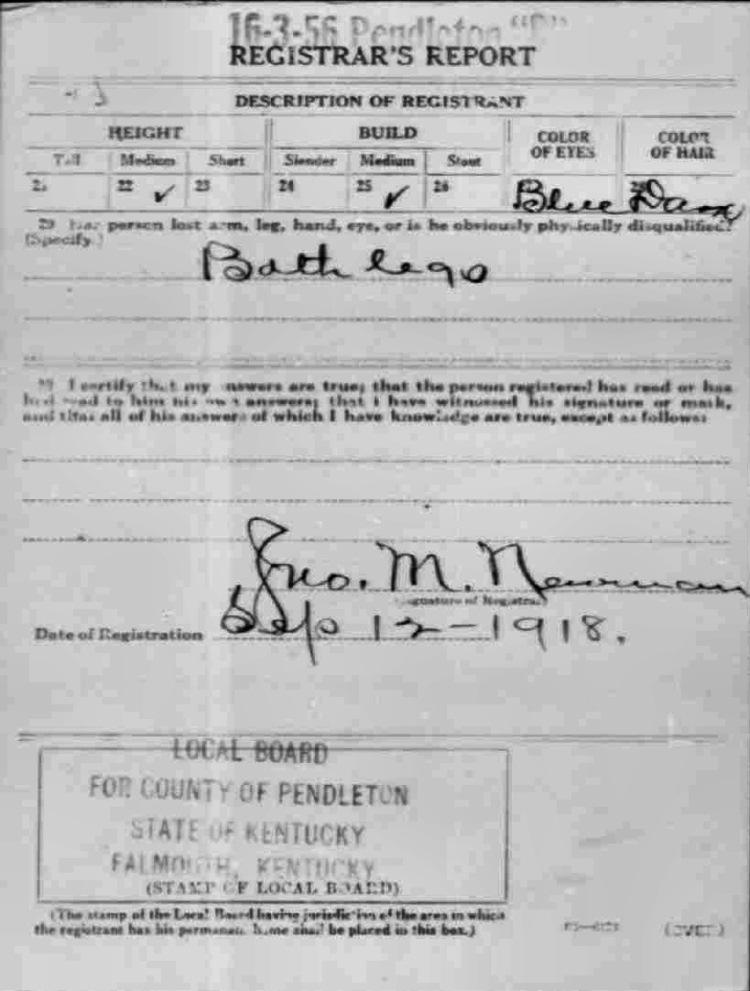 16-3-56 Pendleton "C"
REGISTRAR'S REPORT
DESCRIPTION OF REGISTRANT
HEIGHT BUILD COLOR OF EYES COLOR OF HAIR
Tall Medium Short Slender Medium Stout
21 22 ✓ 23 24 25 ✓ 26 Blue
29 Has person lost arm, leg, hand, eye, or is he obviously physically disqualified?
(Specify.)
Both legs
30 I certify that my answers are true; that the person registered has read or has
had read to him his own answers; that I have witnessed his signature or mark,
and that all of his answers of which I have knowledge are true, except as follows:
Jno. M. Newman
(Signature of Registrar)
Date of Registration Sep 12-1918.
LOCAL BOARD
FOR COUNTY OF PENDLETON
STATE OF KENTUCKY
FALMOUTH, KENTUCKY
(STAMP OF LOCAL BOARD)
(The stamp of the Local Board having jurisdiction of the area in which
the registrant has his permanent home shall be placed in this box.)
(OVER)